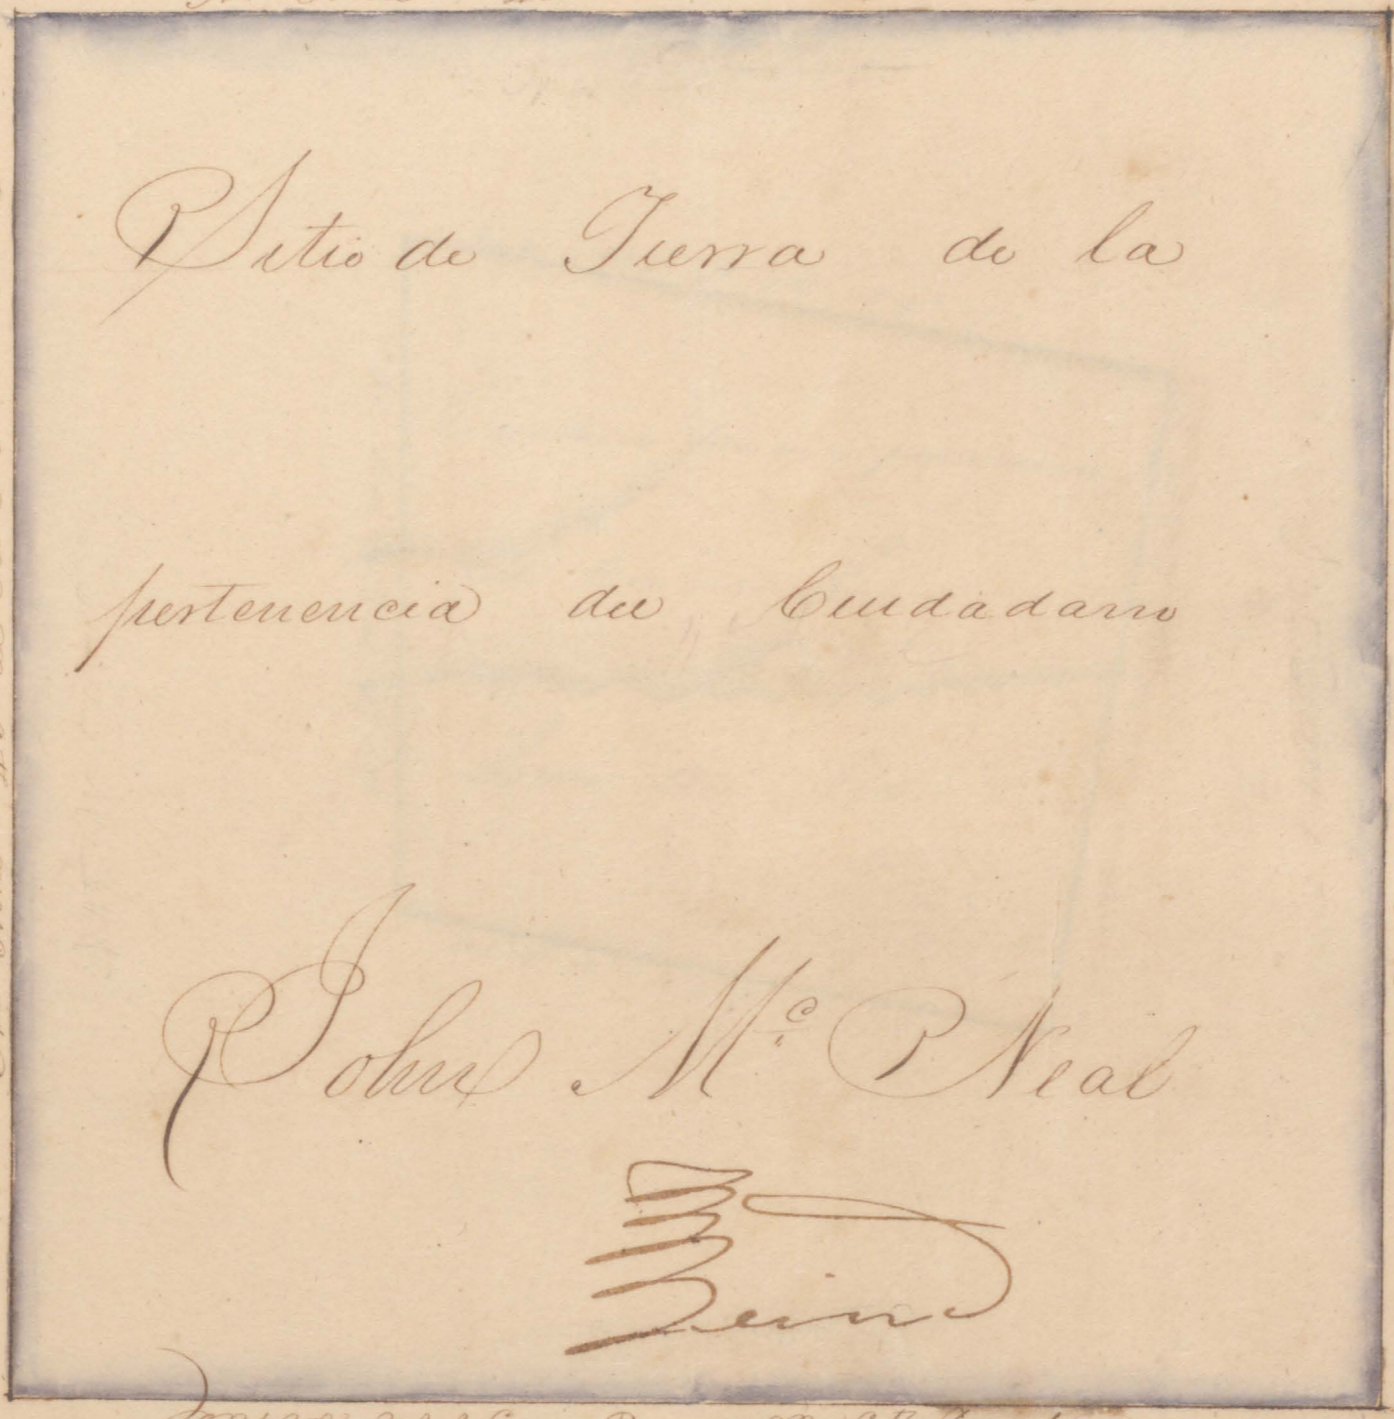 Sitio de Tierra de la
pertenencia del Ciudadano
John Mc Neal